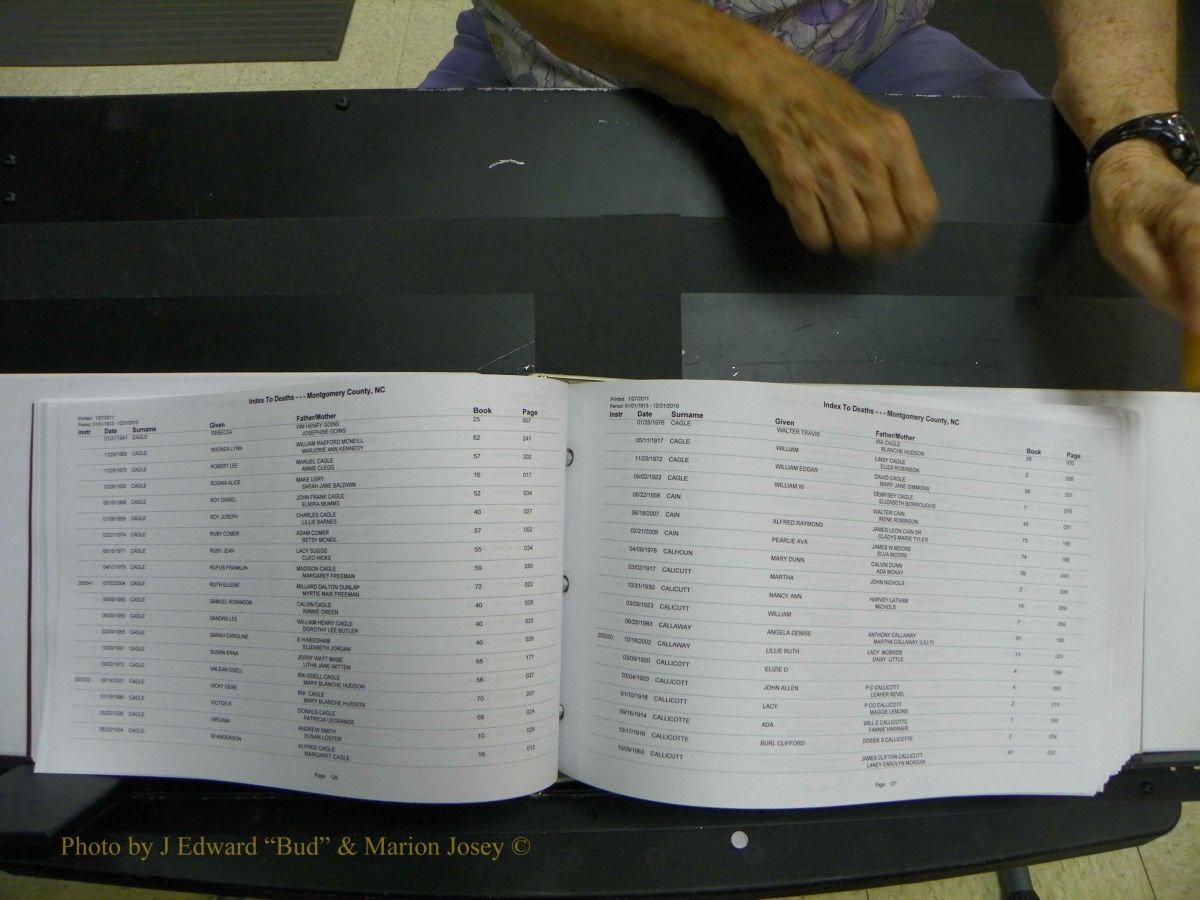 Index To Deaths - - - Montgomery County, NC
Printed: 1/27/2011
Period: 01/01/1913 - 12/31/2010
Instr Date Surname Given Father/Mother Book Page
01/21/1941 CAGLE REBECCA WM HENRY GOINS 25 007
JOSEPHINE GOINS
11/29/1985 CAGLE RHONDA LYNN WILLIAM RAEFORD MCNEILL 62 241
MARJORIE ANN KENNEDY
11/29/1973 CAGLE ROBERT LEE MANUEL CAGLE 57 302
ANNIE CLEGG
10/26/1932 CAGLE ROSINA ALICE MAKE USRY 16 017
SARAH JANE BALDWIN
06/15/1968 CAGLE ROY DANIEL JOHN FRANK CAGLE 52 034
ELMIRA MUMMS
01/06/1956 CAGLE ROY JOSEPH CHARLES CAGLE 40 027
LILLIE BARNES
03/21/1974 CAGLE RUBY COMER ADAM COMER 57 052
BETSY MCNEIL
06/15/1971 CAGLE RUBY JEAN LACY SUGGS 55 034
CLEO HICKS
04/17/1979 CAGLE RUFUS FRANKLIN MADISON CAGLE 59 280
MARGARET FREEMAN
200941 07/02/2004 CAGLE RUTH ELLENE MILLARD DALTON DUNLAP 72 022
MYRTIE MAIE FREEMAN
CAGLE SAMUEL ROBINSON CALVIN CAGLE 40 026
WINNIE GREEN
CAGLE SANDRA LEE WILLIAM HENRY CAGLE 40 025
DOROTHY LEE BUTLER
02/24/1956 CAGLE SARAH CAROLINE E H NEEDHAM 40 029
ELIZABETH JORDAN
10/26/1991 CAGLE SUSAN ERNA JERRY WATT MABE 68 171
LITHA JANE WITTEN
09/22/1972 CAGLE VALEAN ODELL IRA ODELL CAGLE 56 037
MARY BLANCHE HUDSON
200322 09/14/2001 CAGLE VICKY GENE IRA CAGLE 70 207
MARY BLANCHE HUDSON
CAGLE VICTOR R DONALD CAGLE 68 024
PATRICIA LEGRANDE
05/22/1926 CAGLE VIRGINIA ANDREW SMITH 10 029
SUSAN LOSTER
06/23/1934 CAGLE W ANDERSON ALFRED CAGLE 18 013
MARGARET CAGLE
Page 126
Index To Deaths - - - Montgomery County, NC
Printed: 1/27/2011
Period: 01/01/1913 - 12/31/2010
Instr Date Surname Given Father/Mother Book Page
01/26/1976 CAGLE WALTER TRAVIS IRA CAGLE 58
BLANCHE HUDSON
05/11/1917 CAGLE WILLIAM LINSY CAGLE 2
ELIZA ROBINSON
11/29/1972 CAGLE WILLIAM EDGAR DAVID CAGLE 56 331
MARY JANE SIMMONS
09/02/1923 CAGLE WILLIAM W DEMPSEY CAGLE 7 076
ELIZABETH BORROUGHS
06/22/1958 CAIN WALTER CAIN 42 031
IRENE ROBINSON
06/18/2007 CAIN ALFRED RAYMOND JAMES LEON CAIN SR 73
GLADYS MARIE TYLER
02/21/2009 CAIN PEARLIE AVA JAMES W MOORE 74
ELVA MOORE
04/09/1978 CALHOUN MARY DUNN CALVIN DUNN 59 040
ADA MCKAY
03/02/1917 CALICUTT MARTHA JOHN NICHOLS 2
10/31/1930 CALICUTT NANCY ANN HARVEY LATHAM 14
NICHOLS
03/09/1923 CALICUTT WILLIAM 7
06/25/1983 CALLAWAY ANGELA DENISE ANTHONY CALLAWAY 61 165
MARTHA CALLAWAY (LILLY)
200200 10/16/2002 CALLAWAY LILLIE RUTH LACY MCBRIDE 71 029
DAISY LITTLE
03/09/1920 CALLICOTT ELIZIE D 4
03/04/1920 CALLICOTT JOHN ALLEN P C CALLICOTT 4
LEAHER REVEL
01/10/1918 CALLICOTT LACY P CO CALLICOTT 2 213
MAGGIE LEMONS
09/15/1914 CALLICOTTE ADA WILL E CALLICOTTE 1
FANNIE VARANER
10/17/1916 CALLICOTTE BURL CLIFFORD DOSSIE S CALLICOTTE 2
10/09/1963 CALLICUTT JAMES CLIFTON CALLICUTT 47 032
LANEY CAROLYN MORGAN
Page 127
Photo by J Edward “Bud” & Marion Josey ©